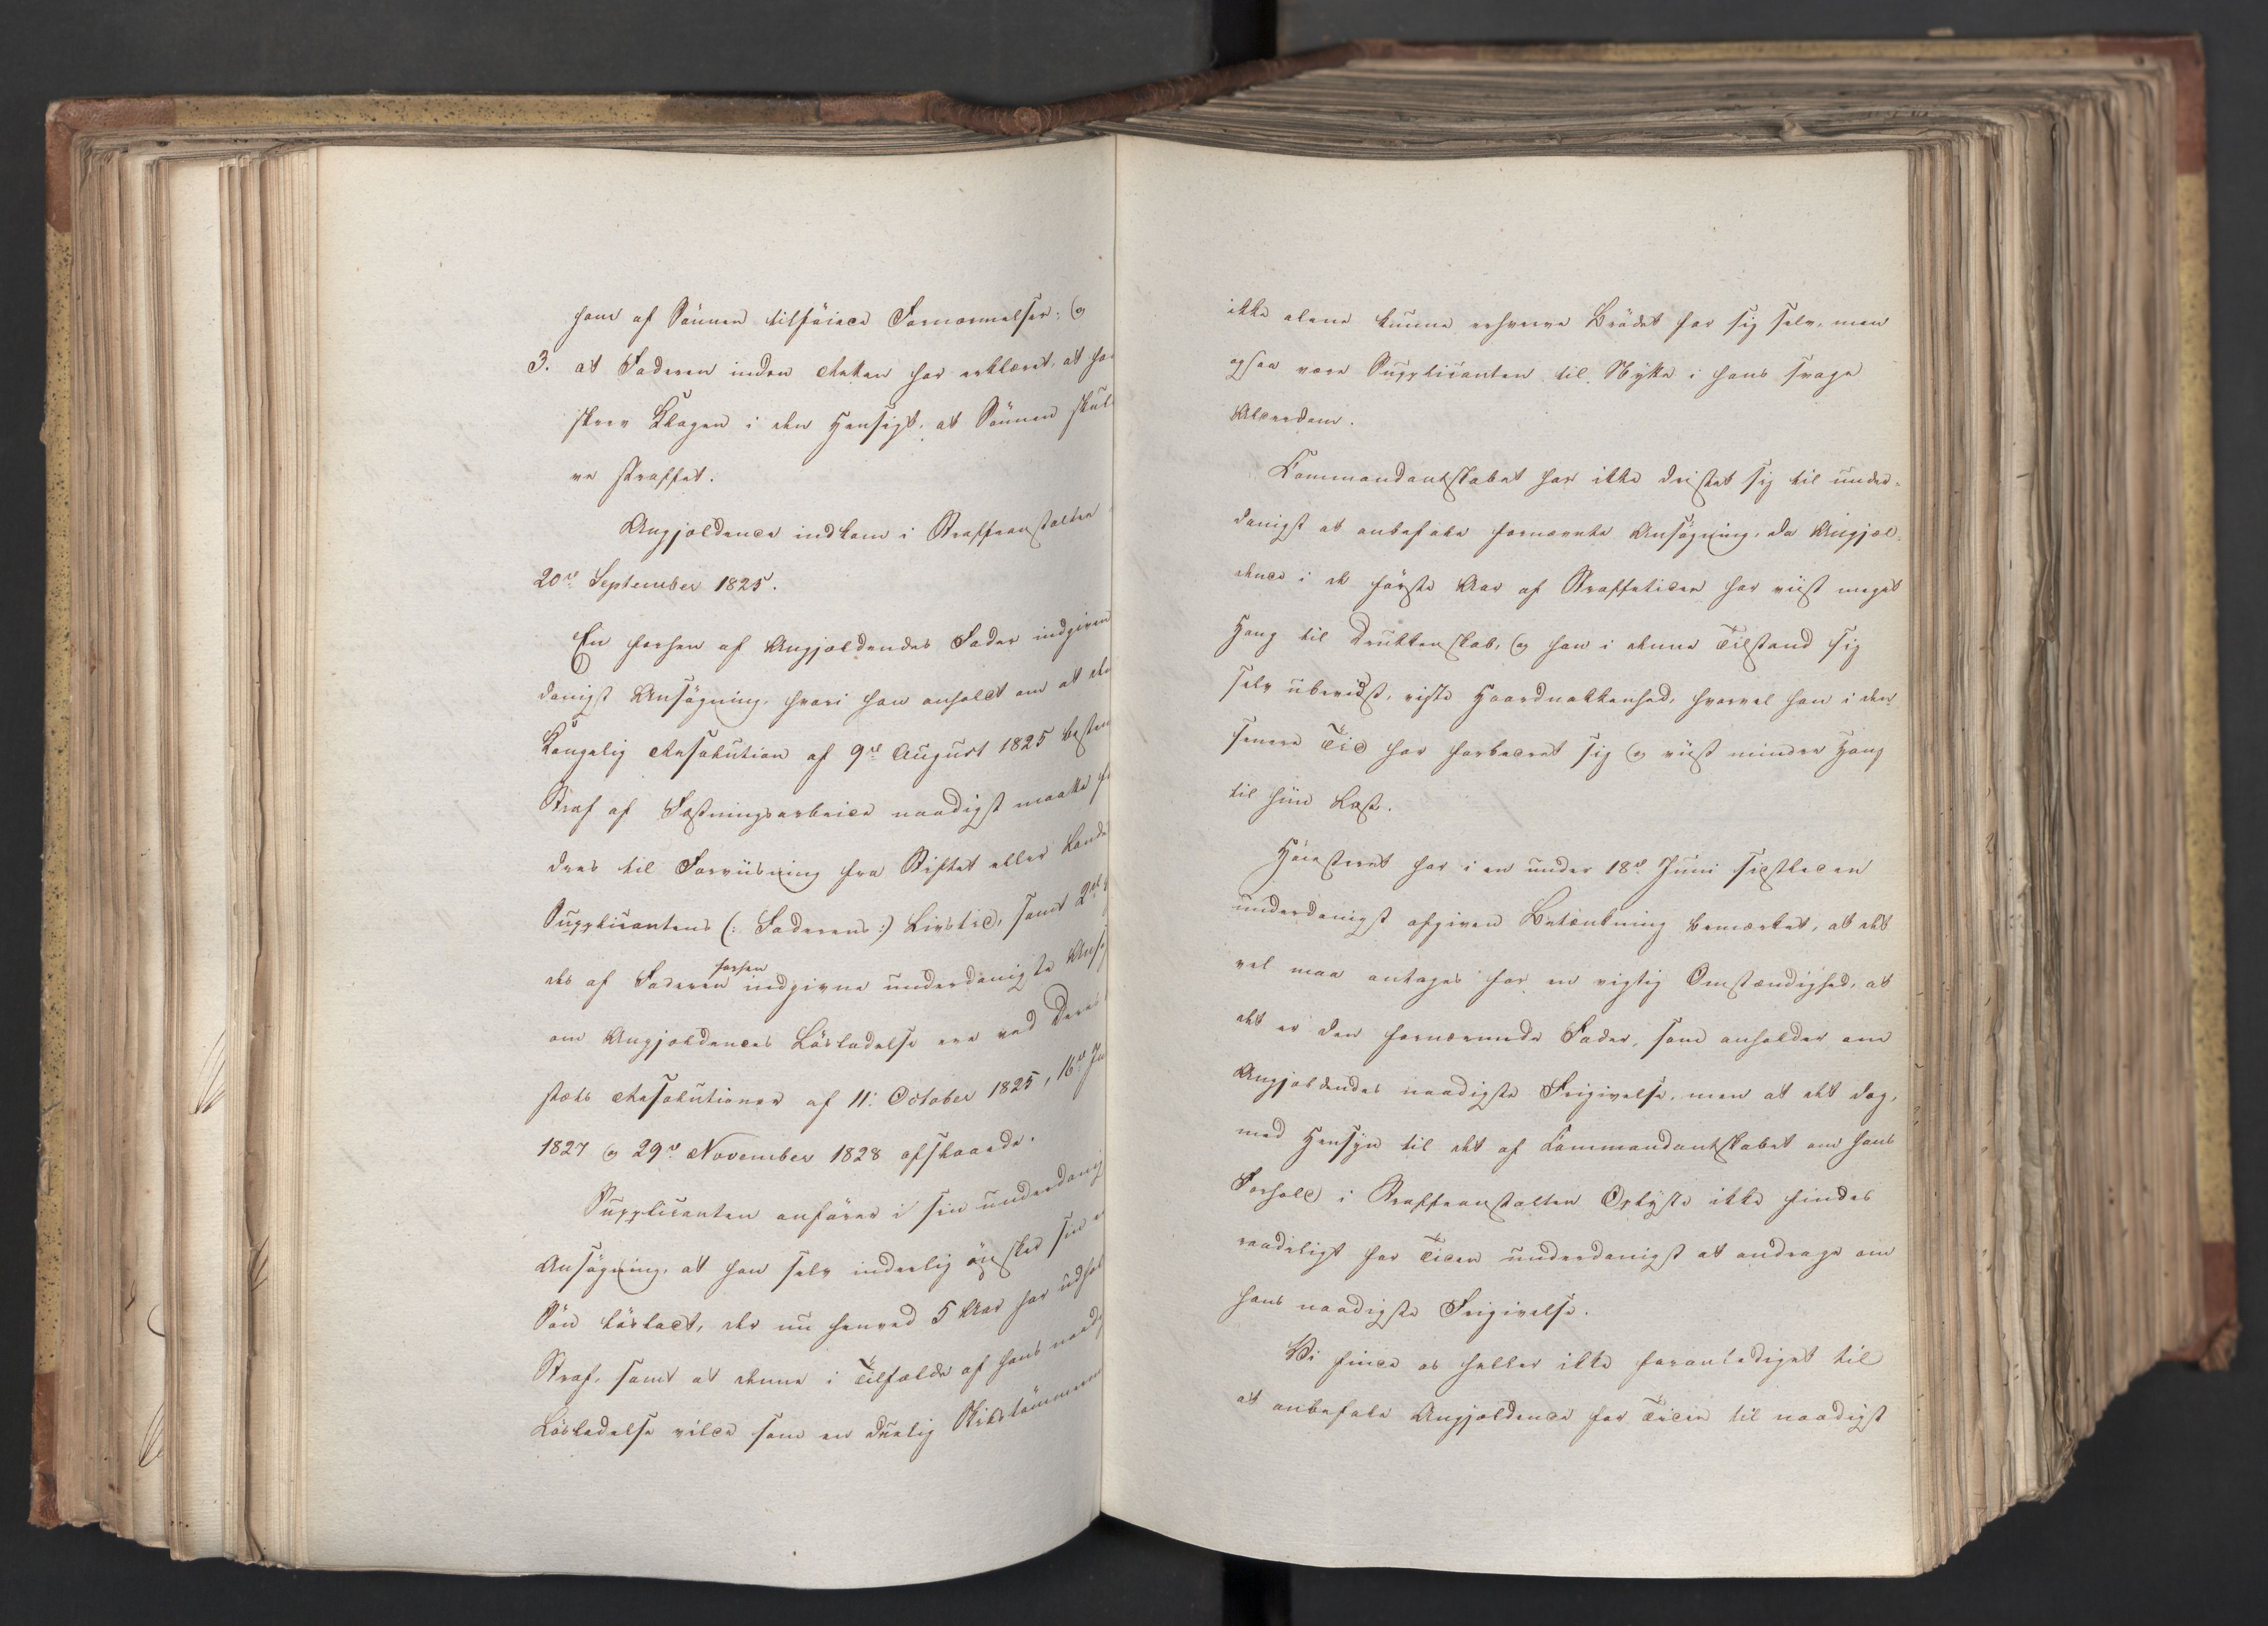 ham af Sönnen tilföiede Fornærmelser; og
3. at Faderen inden Retten har erklæret, at ha
skrev Klagen i den Hensigt, at Sönnen skul
ve straffet.
Angjældende indkom i Straffeanstalten
20de September 1825.
En forhen af Angjældendes Fader indgiven
danigst Ansögning, hvori han anholdt om at de
Kongelig Resolution af 9de August 1825 bestem
Straf af Fæstningsarbeide naadigst maatte
dres til Forviisning fra Stiftet eller Landet
Supplicantens (: Faderens :) Livstid, samt 2de
des af Faderen forhen indgivne underdanigste Ansö
om Angjældendes Lösladelse ere ved Deres
stæts Resolutioner af 11. October 1825, 16de Ju
1827 og 29de November 1828 afslaaede.
Supplicanten anförer i sin underdanig
Ansögning, at han selv inderlig önsker sin
Sön lösladt, der nu henved 5 Aar har udhol
Straf, samt at denne i Tilfælde af hans naadig
Lösladelse vilde som en duelig Skibstömmerm
ikke alene kunne erhverve Brödet for sig selv, men
ogsaa være Supplicanten til Nytte i hans svage
Alderdom.
Commandantskabet har ikke dristet sig til under-
danigst at anbefale fornævnte Ansögning, da Angjæl-
dende i de förste Aar af Straffetiden har viist meget
Hang til Drukkenskab, og han i denne Tilstand sig
selv ubevidst, viste Haardnakkenhed, hvorvel han i den
senere Tid har forbedret sig og viist mindre Hang
til hiin Last.
Höiesteret har i en under 18de Juni sidstleden
underdanigst afgiven Betænkning bemærket, at det
vel maa antages for en vigtig Omstændighed, at
det er den fornærmede Fader, som anholder om
Angjældendes naadigste Frigivelse, men at det dog,
med Hensyn til det af Commandantskabet om hans
Forhold i Straffeanstalten Oplyste ikke findes
raadeligt for Tiden underdanigst at andrage om
hans naadigste Frigivelse.
Vi finde os heller ikke foranlediget til
at anbefale Angjældende for Tiden til naadigst